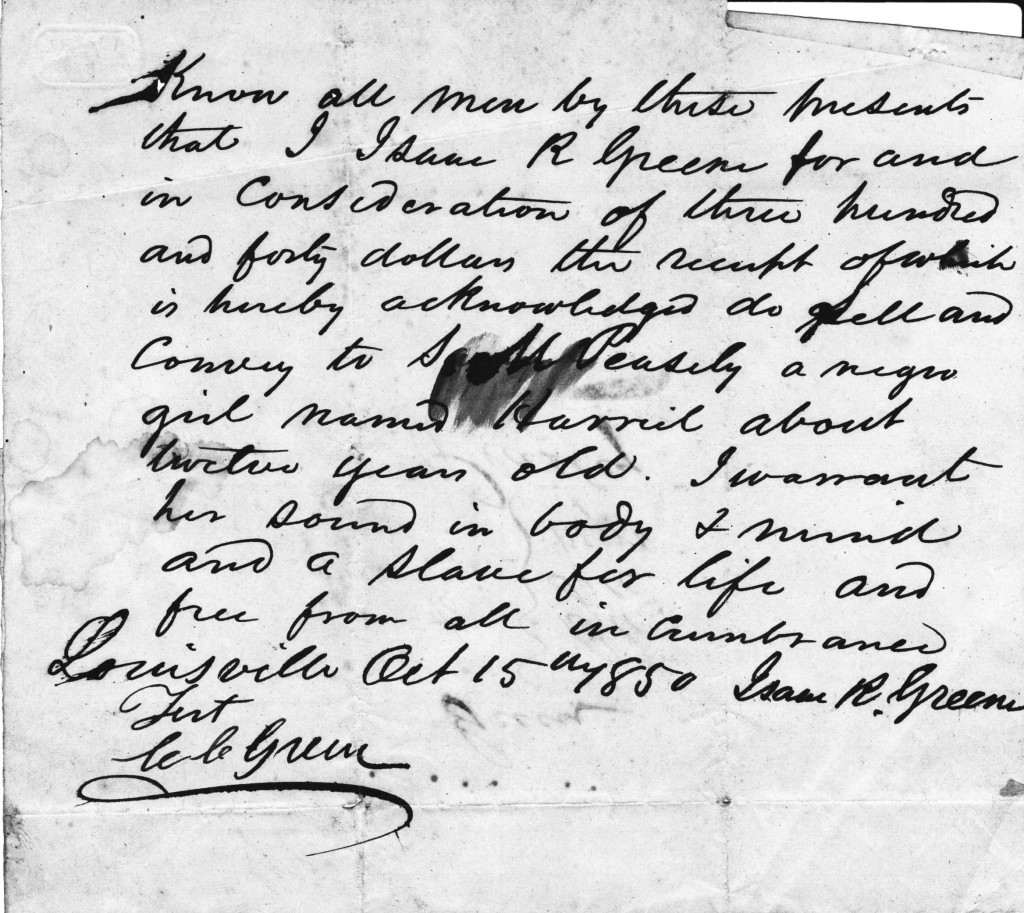 Know all men by these presents
that I Isaac R Greene for and
in Consideration of three hundred
and forty dollars the receipt of which
is hereby acknowledged do sell and
Convey to Peasely a negro
girl named Harriet about
twelve years old. I warrant
her sound in body & mind
and a slave for life and
free from all incumbrance
Louisville Oct 15th 1850 Isaac R. Greene
Test
C C Green